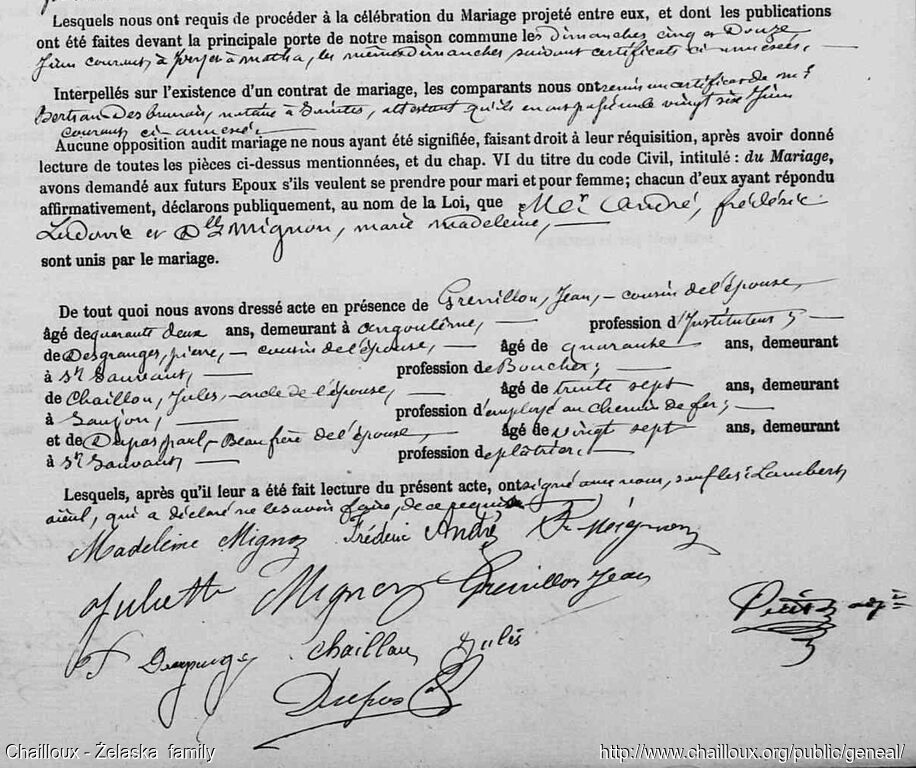 Lesquels nous ont requis de procéder à la célébration du Mariage projeté entre eux, et dont les publications
ont été faites devant la principale porte de notre maison commune les dimanches cinq et Douze
Juin courant, à matha, les mêmes dimanches suivant certificats ci-annexés, —
Interpellés sur l'existence d'un contrat de mariage, les comparants nous ont remis un certificat de Mr
Bertrand notaire à Saintes, attestant qu'ils en ont passé un le vingt six Juin
courant ci-annexé. —
Aucune opposition audit mariage ne nous ayant été signifiée, faisant droit à leur réquisition, après avoir donné
lecture de toutes les pièces ci-dessus mentionnées, et du chap. VI du titre du code Civil, intitulé : du Mariage,
avons demandé aux futurs Epoux s'ils veulent se prendre pour mari et pour femme; chacun d'eux ayant répondu
affirmativement, déclarons publiquement, au nom de la Loi, que Mr André, frédéric
Ludovic et Dlle Mignon, marie madeleine, —
sont unis par le mariage.
De tout quoi nous avons dressé acte en présence de Grenillon, Jean, — cousin de l'épouse,
âgé de quarante deux ans, demeurant à angoulême, — profession d'Instituteur; —
de Desgranges, pierre, — cousin de l'épouse, — âgé de quarante — ans, demeurant
à St Sauvant, — profession de Boucher; —
de Chaillou, Jules, — oncle de l'épouse, — âgé de trente sept ans, demeurant
à Saujon, — profession d'employé au chemin de fer; —
et de Dupas paul, — Beau frère de l'épouse, — âgé de vingt sept ans, demeurant
à St Sauvant — profession de plâtrier. —
Lesquels, après qu'il leur a été fait lecture du présent acte, ont signé avec nous, sauf les Lambert
aïeul, qui a déclaré ne le savoir faire, de ce requis
Madeleine Mignon Frédéric André P. Mignon
Juliette Mignon Grenillon Jean
P Desgranges Chaillou Jules
Dupas P
Chailloux - Żelaska family http://www.chailloux.org/public/geneal/